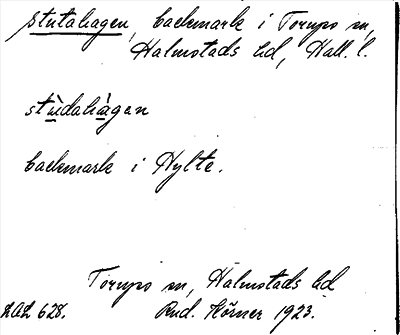 stutahagen, backmark i Torups sn,
Halmstads hd, Hall. l.
stùdahàgen
backmark i Hylte.
Torups sn, Halmstads hd
LAL 628. Rud. Hörner 1923.